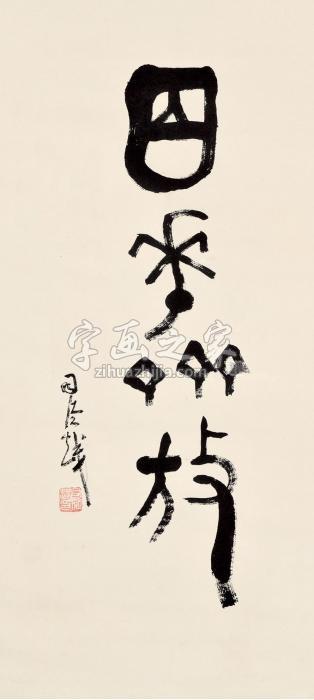 四季齊放
司徒越
字画之家
zihuazhijia.com